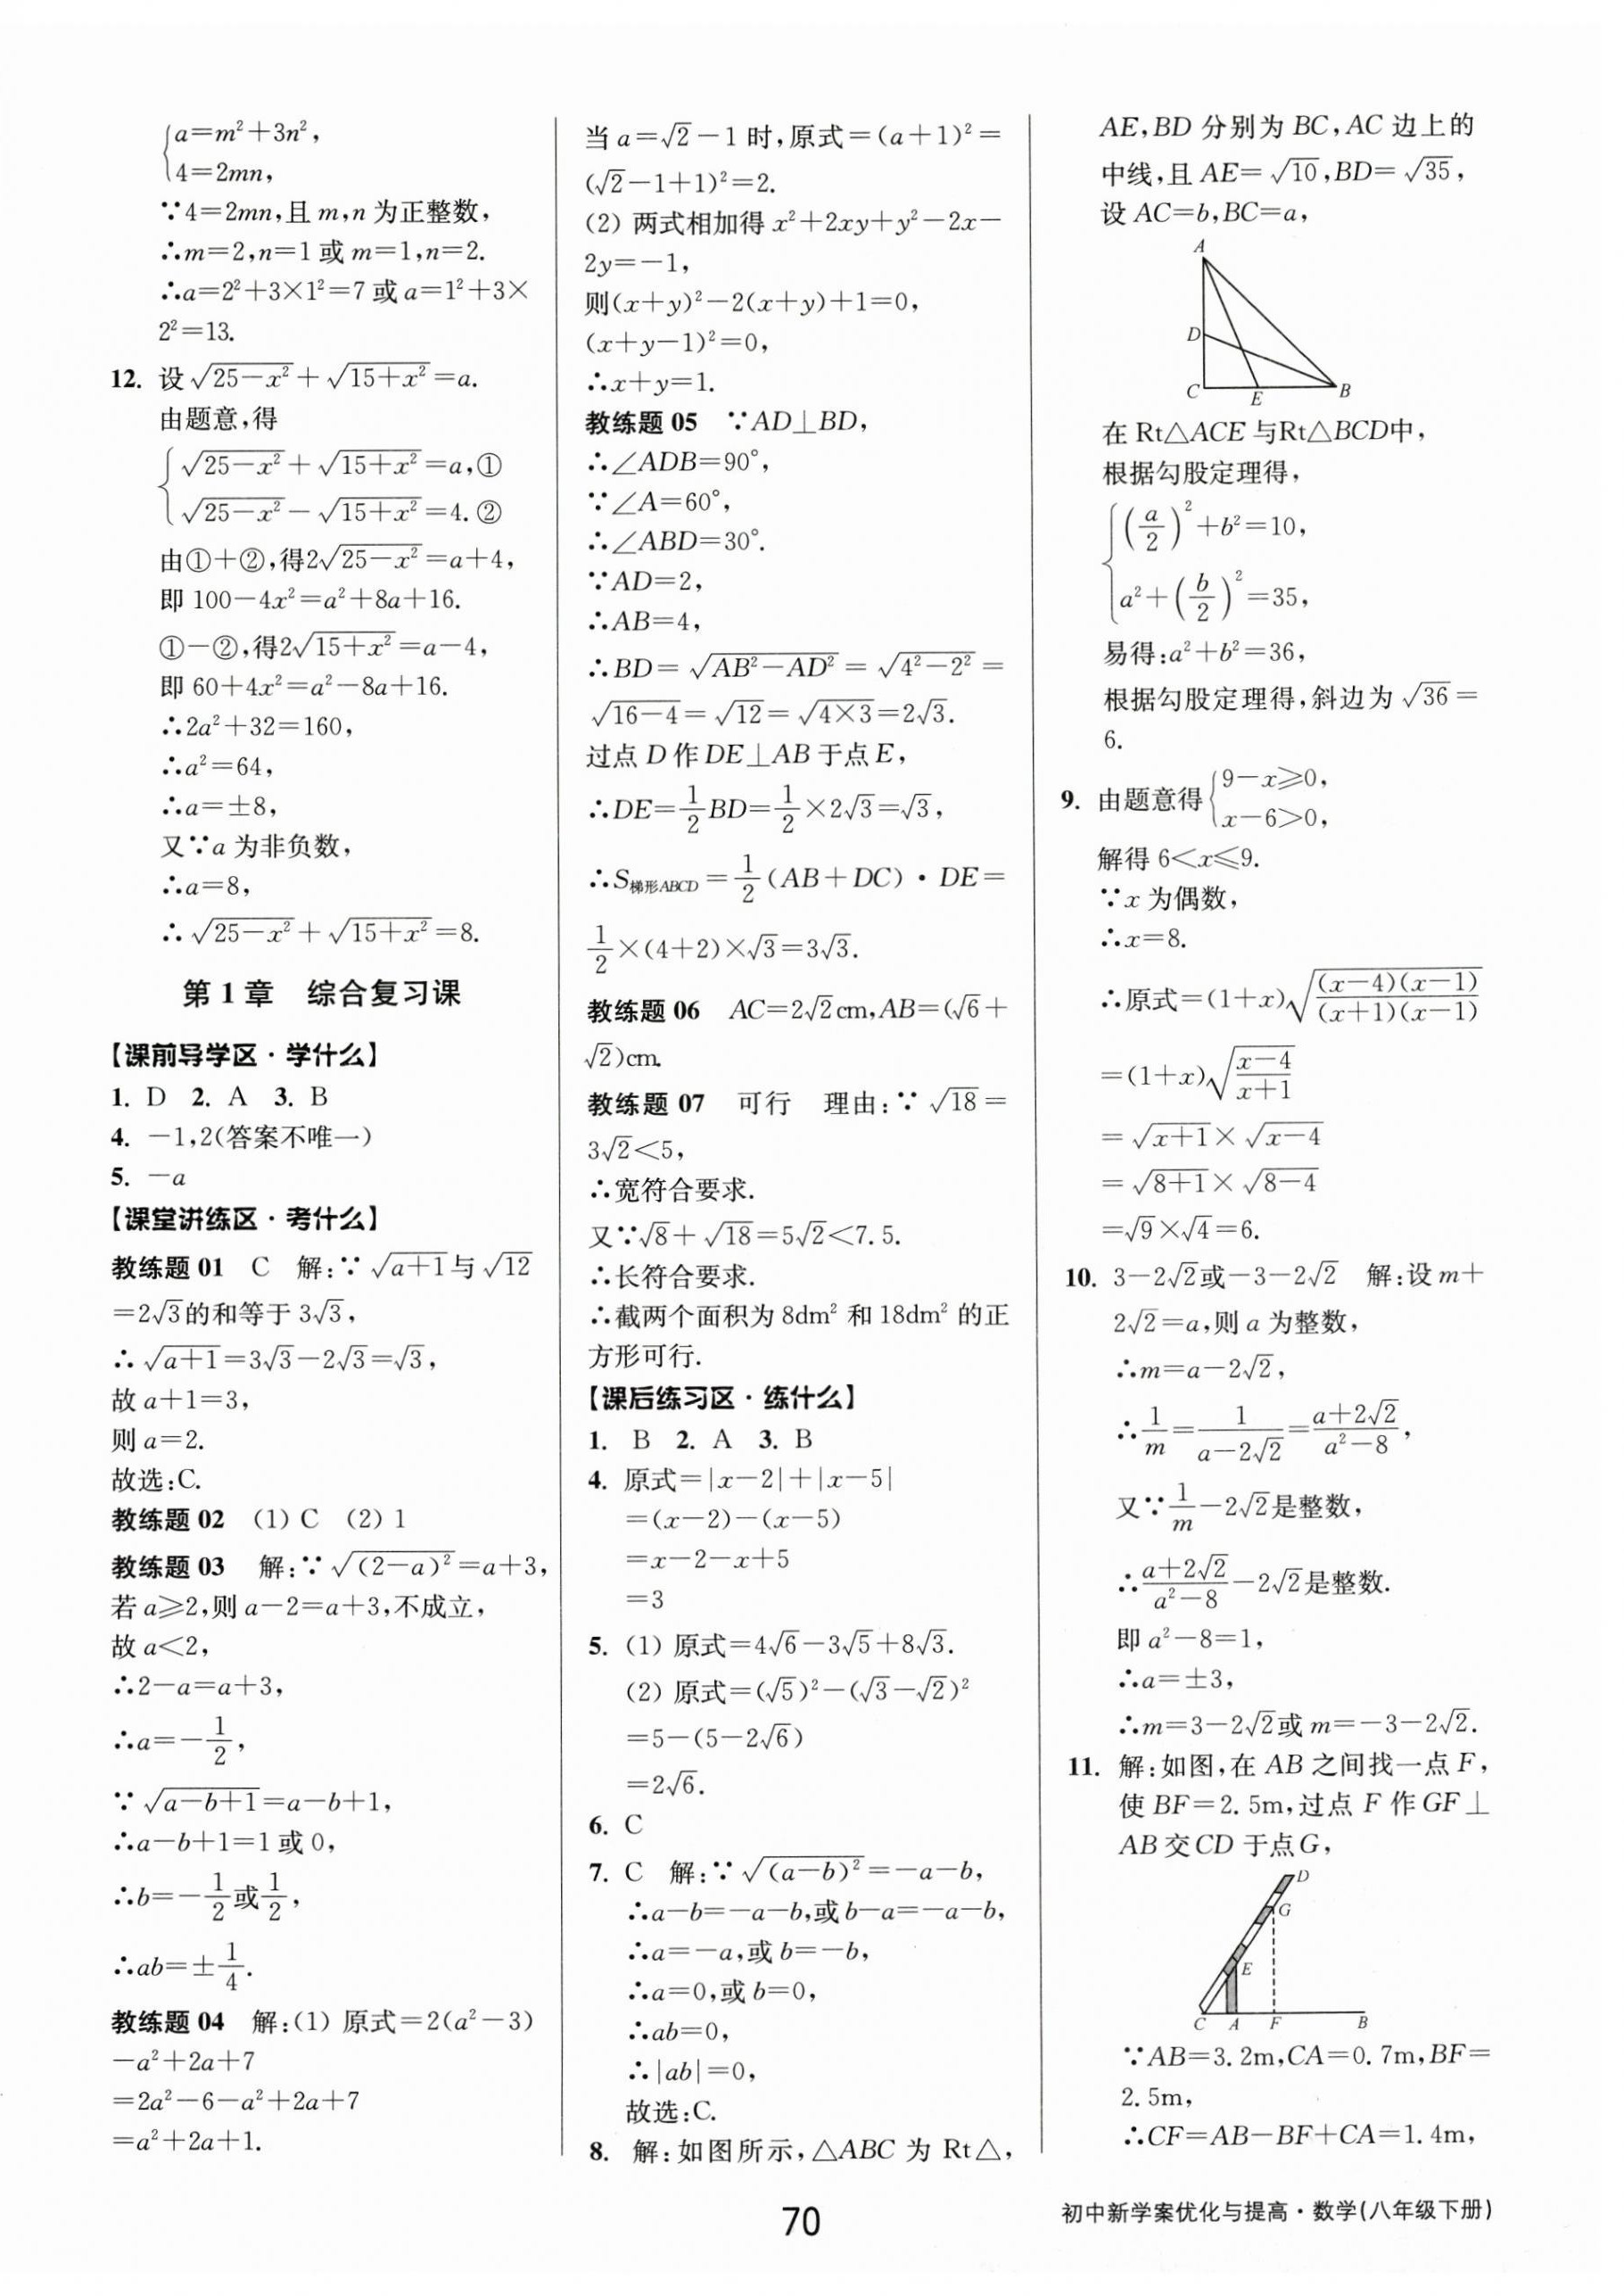 {a=m²+3n²,
4=2mn,
∵4=2mn,且 m,n 为正整数,
∴m=2,n=1 或 m=1,n=2.
∴a=2²+3×1²=7 或 a=1²+3×
2²=13.
12. 设√(25-x²)+√(15+x²)=a.
由题意,得
{√(25-x²)+√(15+x²)=a,①
√(25-x²)-√(15+x²)=4.②
由①+②,得2√(25-x²)=a+4,
即 100-4x²=a²+8a+16.
①-②,得2√(15+x²)=a-4,
即 60+4x²=a²-8a+16.
∴2a²+32=160,
∴a²=64,
∴a=±8,
又∵a 为非负数,
∴a=8,
∴√(25-x²)+√(15+x²)=8.
第 1 章 综合复习课
【课前导学区·学什么】
1. D 2. A 3. B
4. -1,2(答案不唯一)
5. -a
【课堂讲练区·考什么】
教练题 01 C 解:∵√(a+1)与√12
=2√3的和等于 3√3,
∴√(a+1)=3√3-2√3=√3,
故 a+1=3,
则 a=2.
故选:C.
教练题 02 (1) C (2) 1
教练题 03 解:∵√((2-a)²)=a+3,
若 a≥2,则 a-2=a+3,不成立,
故 a<2,
∴2-a=a+3,
∴a=-1/2,
∵√(a-b+1)=a-b+1,
∴a-b+1=1 或 0,
∴b=-1/2或1/2,
∴ab=±1/4.
教练题 04 解:(1) 原式=2(a²-3)
-a²+2a+7
=2a²-6-a²+2a+7
=a²+2a+1.
当 a=√2-1 时,原式=(a+1)²=
(√2-1+1)²=2.
(2) 两式相加得 x²+2xy+y²-2x-
2y=-1,
则(x+y)²-2(x+y)+1=0,
(x+y-1)²=0,
∴x+y=1.
教练题 05 ∵AD⊥BD,
∴∠ADB=90°,
∵∠A=60°,
∴∠ABD=30°.
∵AD=2,
∴AB=4,
∴BD=√(AB²-AD²)=√(4²-2²)=
√(16-4)=√12=√(4×3)=2√3.
过点 D 作 DE⊥AB 于点 E,
∴DE=1/2BD=1/2×2√3=√3,
∴S梯形ABCD=1/2(AB+DC)·DE=
1/2×(4+2)×√3=3√3.
教练题 06 AC=2√2cm,AB=(√6+
√2)cm.
教练题 07 可行 理由:∵√18=
3√2<5,
∴宽符合要求.
又∵√8+√18=5√2<7.5.
∴长符合要求.
∴截两个面积为 8dm² 和 18dm² 的正
方形可行.
【课后练习区·练什么】
1. B 2. A 3. B
4. 原式=|x-2|+|x-5|
=(x-2)-(x-5)
=x-2-x+5
=3
5. (1) 原式=4√6-3√5+8√3.
(2) 原式=(√5)²-(√3-√2)²
=5-(5-2√6)
=2√6.
6. C
7. C 解:∵√((a-b)²)=-a-b,
∴a-b=-a-b,或 b-a=-a-b,
∴a=-a,或 b=-b,
∴a=0,或 b=0,
∴ab=0,
∴|ab|=0,
故选:C.
8. 解:如图所示,△ABC 为 Rt△,
AE,BD 分别为 BC,AC 边上的
中线,且 AE=√10,BD=√35,
设 AC=b,BC=a,
A
D
C E B
在 Rt△ACE 与Rt△BCD中,
根据勾股定理得,
{(a/2)²+b²=10,
a²+(b/2)²=35,
易得:a²+b²=36,
根据勾股定理得,斜边为√36=
6.
9. 由题意得{9-x≥0,
x-6>0,
解得 6<x≤9.
∵x 为偶数,
∴x=8.
∴原式=(1+x)√((x-4)(x-1)/((x+1)(x-1)))
=(1+x)√((x-4)/(x+1))
=√(x+1)×√(x-4)
=√(8+1)×√(8-4)
=√9×√4=6.
10. 3-2√2或-3-2√2 解:设 m+
2√2=a,则 a 为整数,
∴m=a-2√2,
∴1/m=1/(a-2√2)=(a+2√2)/(a²-8),
又∵1/m-2√2是整数,
∴(a+2√2)/(a²-8)-2√2是整数.
即 a²-8=1,
∴a=±3,
∴m=3-2√2或 m=-3-2√2.
11. 解:如图,在 AB 之间找一点 F,
使 BF=2.5m,过点 F 作 GF⊥
AB 交 CD 于点 G,
D
G
E
C A F B
∵AB=3.2m,CA=0.7m,BF=
2.5m,
∴CF=AB-BF+CA=1.4m,
70
初中新学案优化与提高·数学(八年级下册)